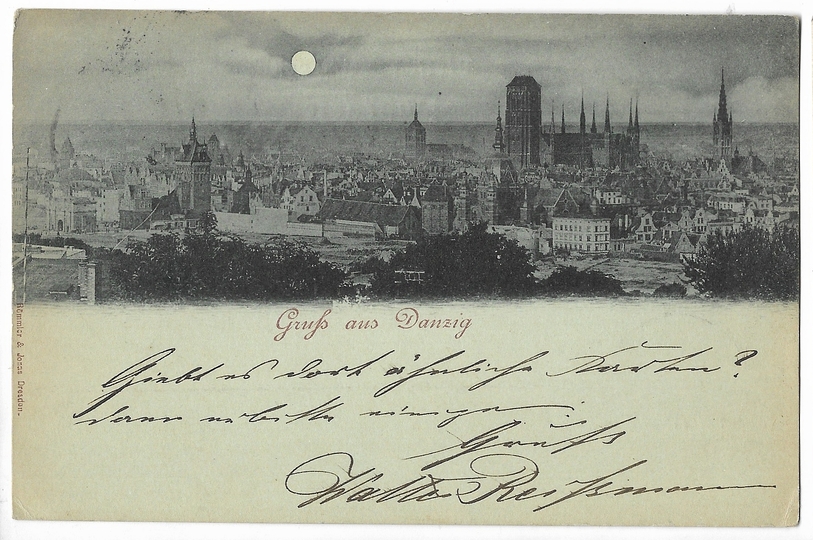 Gruß aus Danzig
Giebt es dort ähnliche Karten?
dann erbitte einige.
Gruß
Walter Reißmann
Römmler & Jonas Dresden.